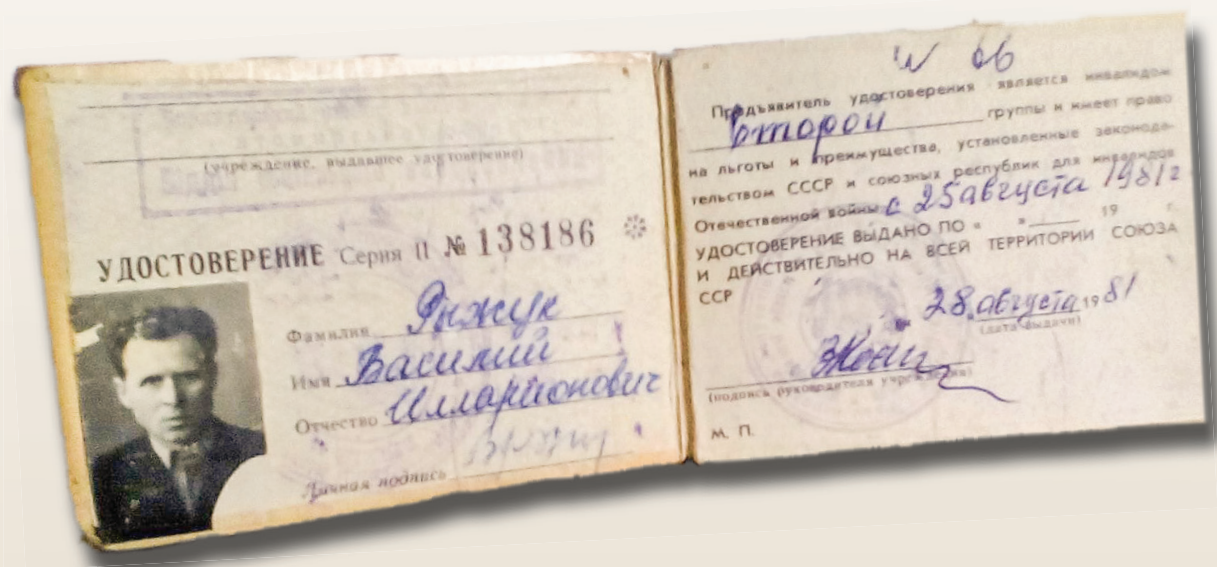 (учреждение, выдавшее удостоверение)
УДОСТОВЕРЕНИЕ Серия II № 138186
Фамилия Рыжук
Имя Василий
Отчество Илларионович
Личная подпись
Предъявитель удостоверения является инвалидом
второй группы и имеет право
на льготы и преимущества, установленные законода-
тельством СССР и союзных республик для инвалидов
Отечественной войны с 25 августа 1981 г
УДОСТОВЕРЕНИЕ ВЫДАНО ПО « » 19 г.
И ДЕЙСТВИТЕЛЬНО НА ВСЕЙ ТЕРРИТОРИИ СОЮЗА
ССР
28 августа 19 81
(дата выдачи)
(подпись руководителя учреждения)
М. П.